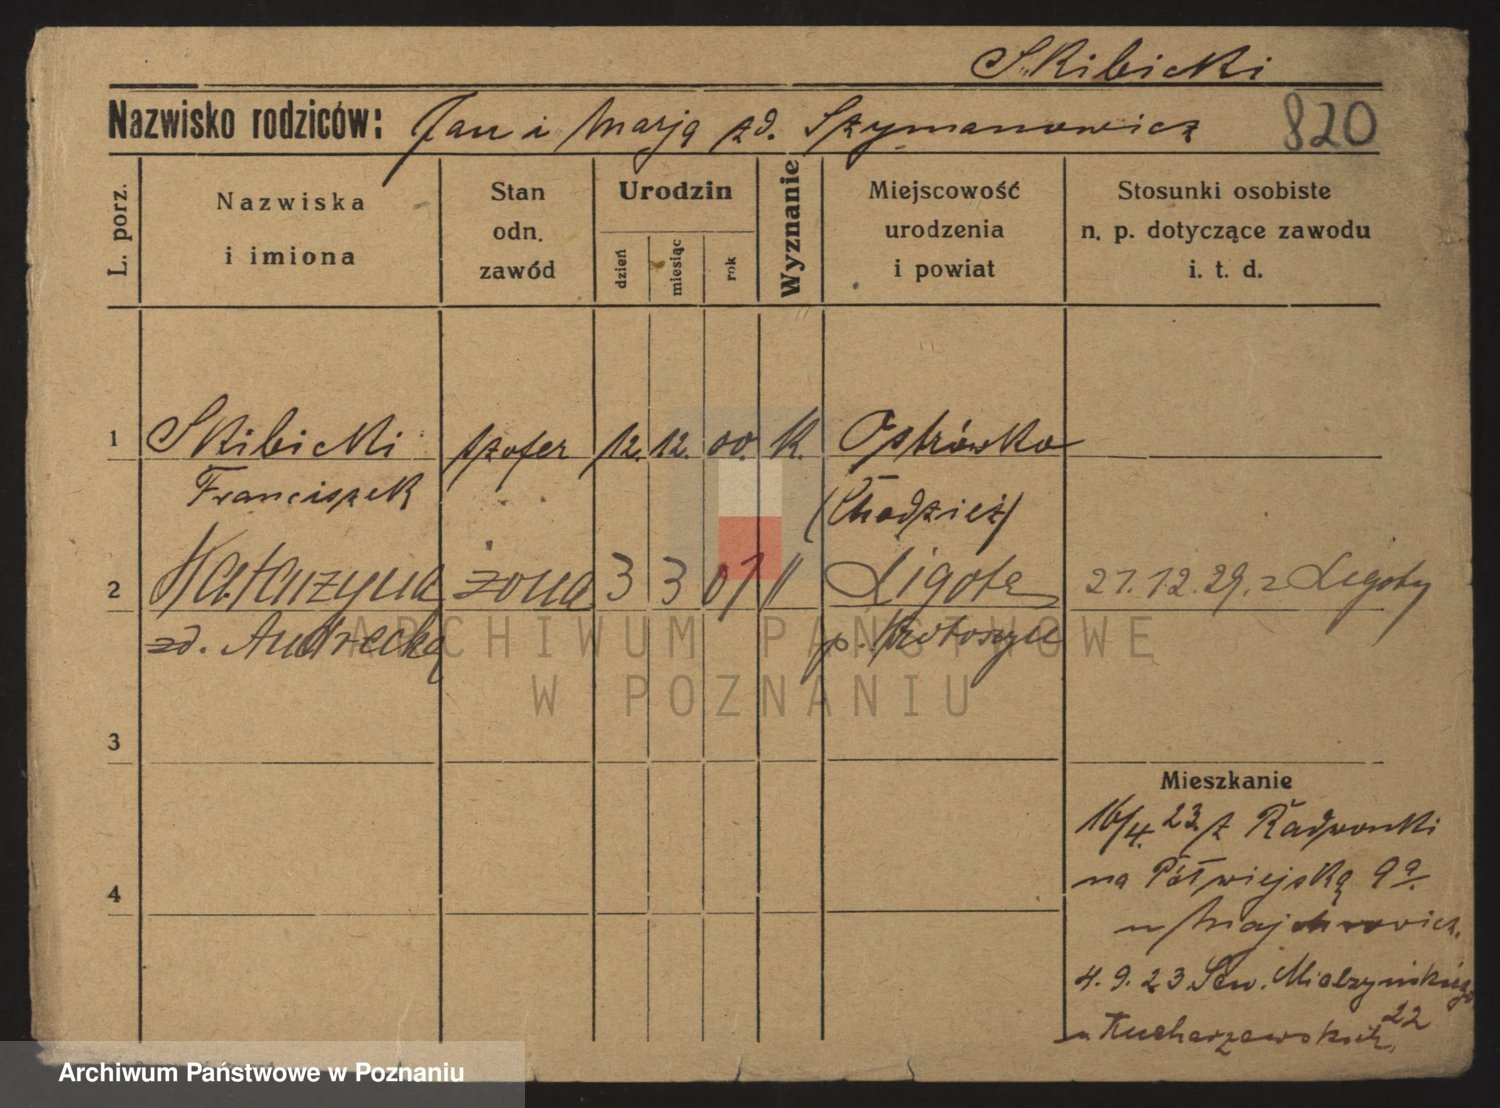 Skibicki
Nazwisko rodziców: Jan i Marja zd. Szymanowicz
820
L. porz.
Nazwiska
i imiona
Stan
odn.
zawód
Urodzin
dzień
miesiąc
rok
Wyznanie
Miejscowość
urodzenia
i powiat
Stosunki osobiste
n. p. dotyczące zawodu
i. t. d.
1 Skibicki szofer 12. 12. 00. K. Ostrówko
Franciszek (Chodzież)
2 Katarzyna żona 3 3 07 " Ligota 21.12.29. z Ligoty
zd. Andrzecka p. Krotoszyn
3
Mieszkanie
16/4. 23 z Radwonki
na Półwiejską 9a.
4
4. 9. 23 Sew. Mielżyńskiego 22
ARCHIWUM PAŃSTWOWE
W POZNANIU
Archiwum Państwowe w Poznaniu